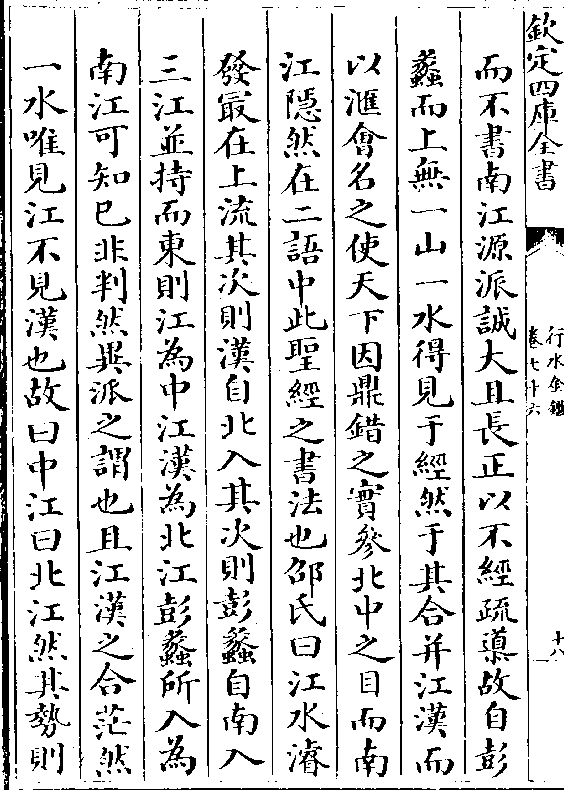 欽定四庫全書
行水金鑑
卷七十六
十八
而不書南江源派誠大且長正以不經疏導故自彭
蠡而上無一山一水得見于經然于其合并江漢而
以滙會名之使天下因鼎錯之實參北中之目而南
江隱然在二語中此聖經之書法也邵氏曰江水濬
發最在上流其次則漢自北入其次則彭蠡自南入
三江並持而東則江為中江漢為北江彭蠡所入為
南江可知已非判然異派之謂也且江漢之合茫然
一水唯見江不見漢也故曰中江曰北江然其勢則